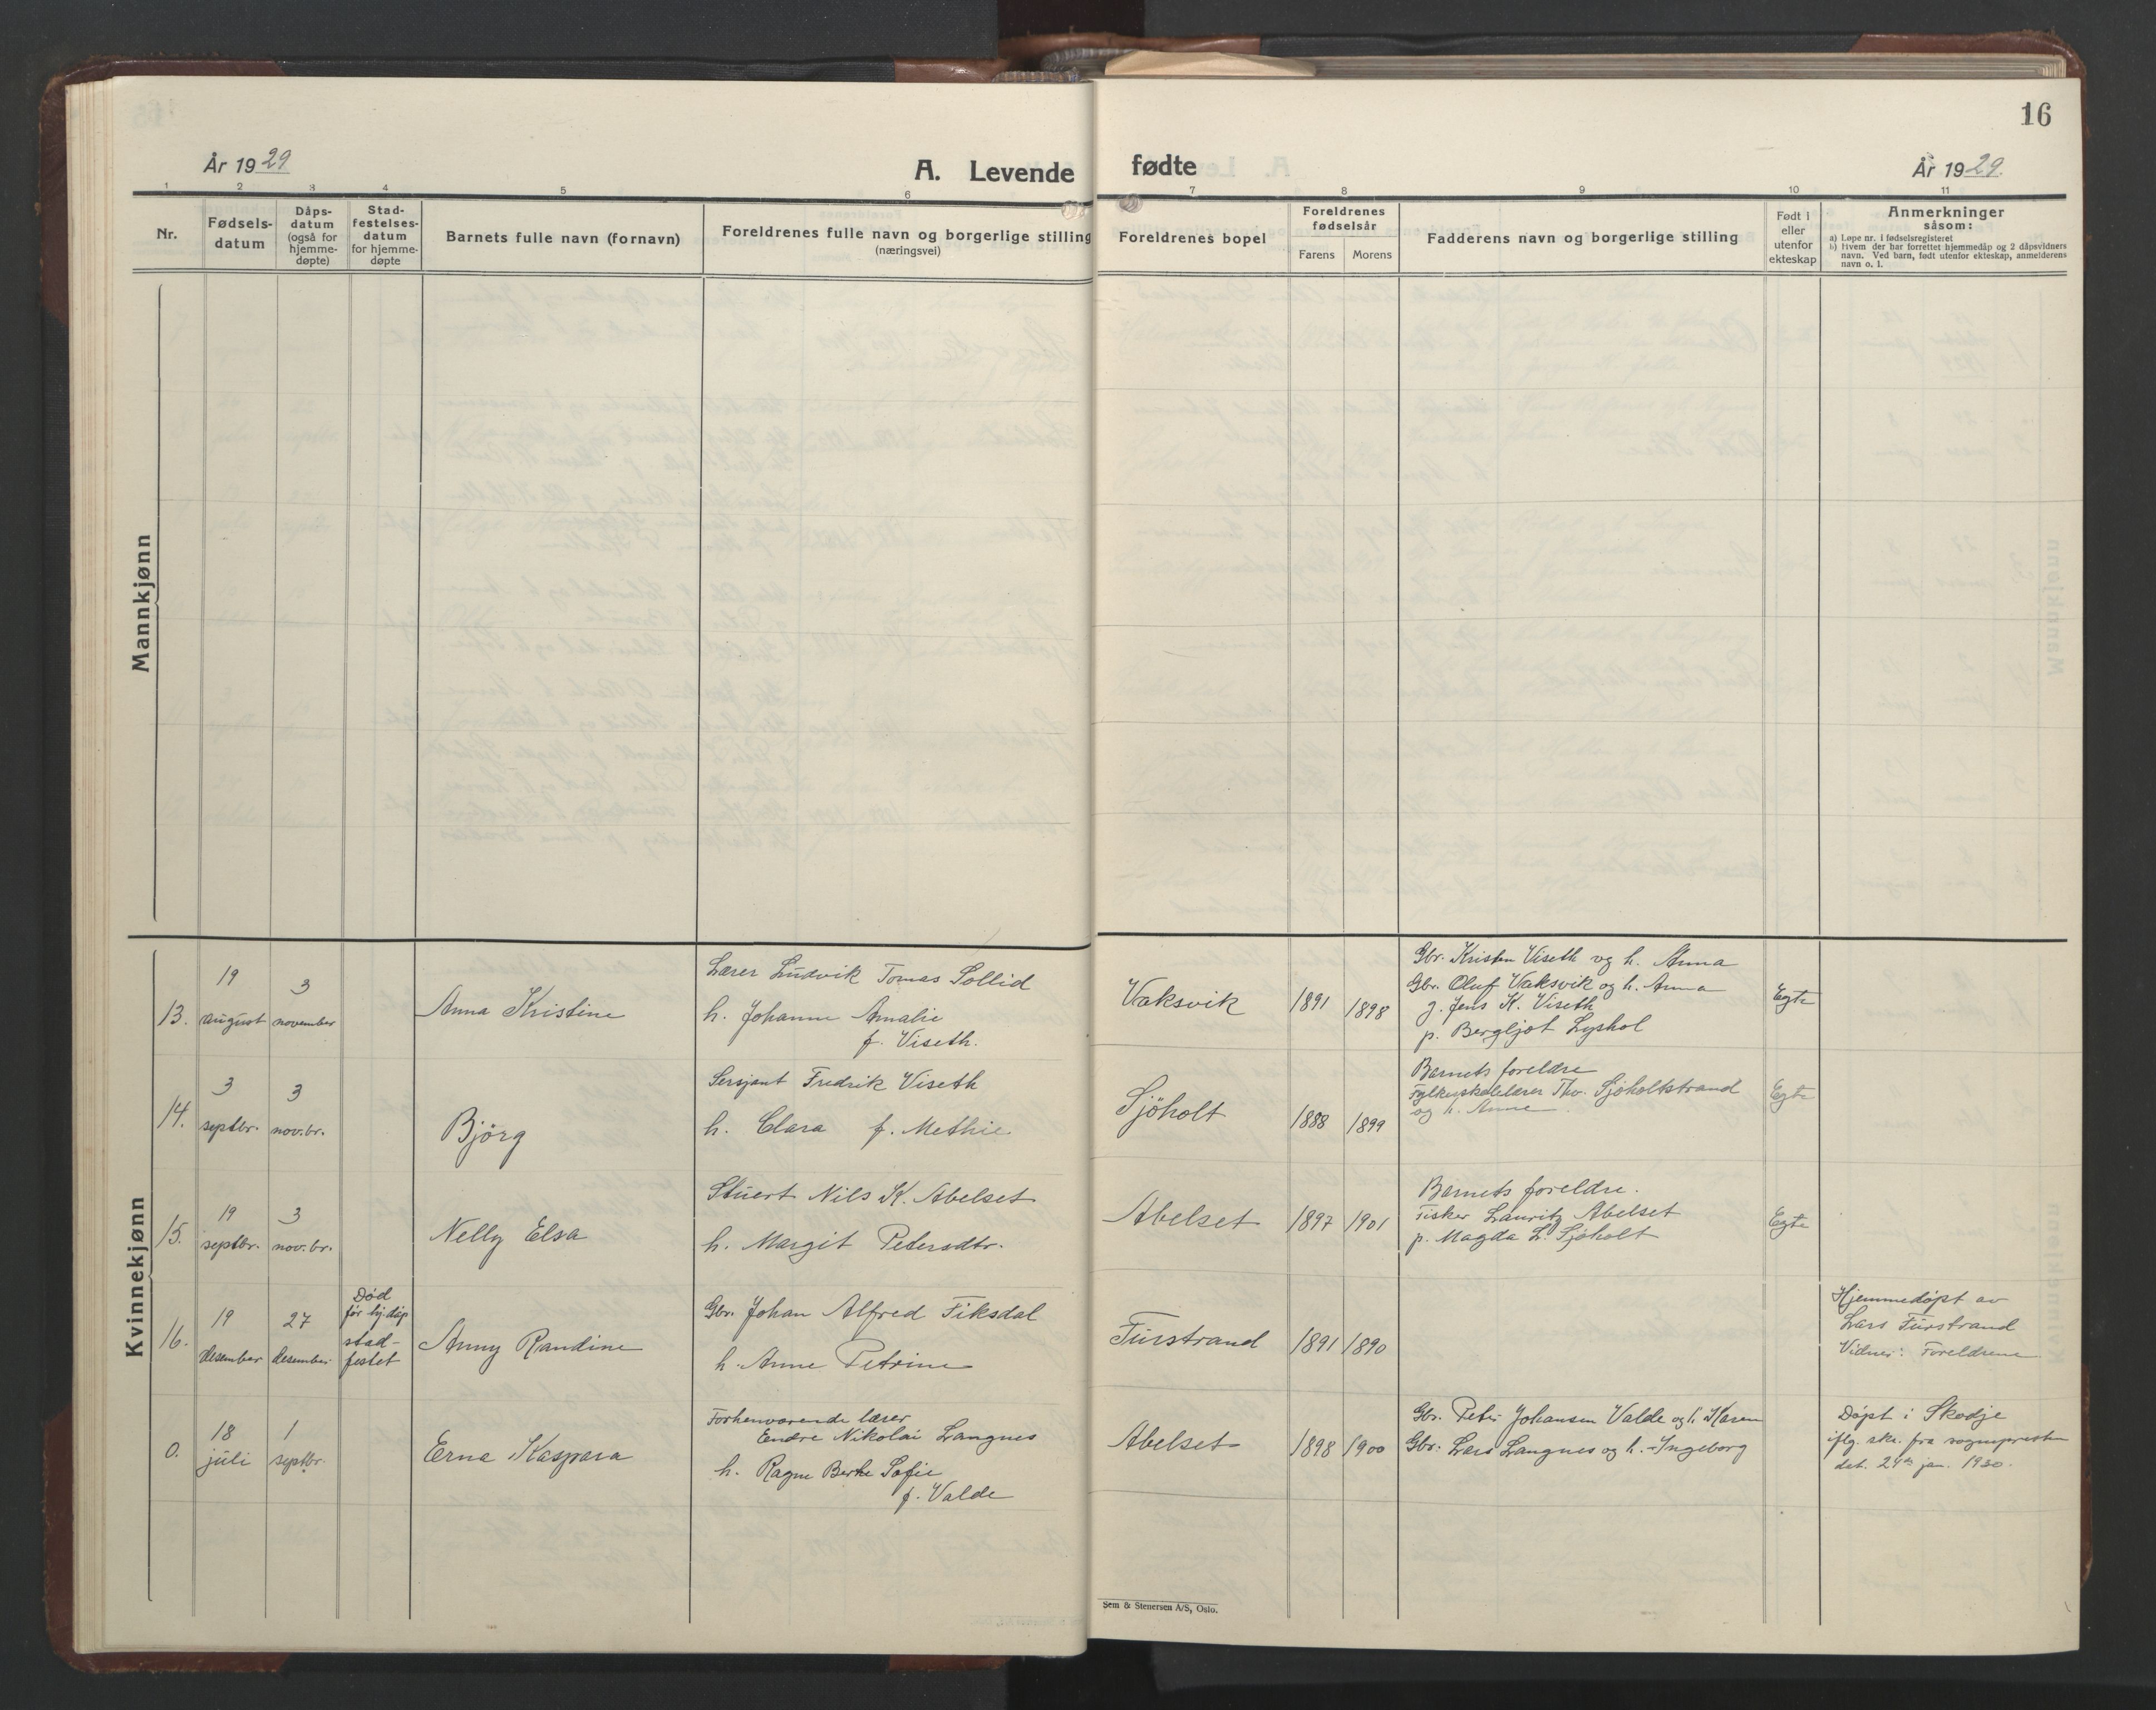 16
År 1929
A. Levende fødte
År 1929.
1 2 3 4 5 6 7 8 9 10 11
Nr.
Fødsels-
datum
Dåps-
datum
(også for
hjemme-
døpte)
Stad-
festelses-
datum
for hjemme-
døpte
Barnets fulle navn (fornavn)
Foreldrenes fulle navn og borgerlige stilling
(næringsvei)
Foreldrenes bopel
Foreldrenes
fødselsår
Farens
Morens
Fadderens navn og borgerlige stilling
Født i
eller
utenfor
ekteskap
Anmerkninger
såsom:
a) Løpe nr. i fødselsregisteret
b) Hvem der har forrettet hjemmedåp og 2 dåpsvidners
navn. Ved barn, født utenfor ekteskap, anmelderens
navn o. l.
Mannkjønn
Kvinnekjønn
13.
19
august
3
november
Anna Kristine
Lærer Ludvik Tomas Sollid
h. Johanne Amalie
f. Viseth.
Vaksvik
1891
1898
Gbr. Kristen Viseth og h. Anna
Gbr. Oluf Vaksvik og h. Anna
g. Jens K. Viseth
p. Bergljot Lyshol
Egte
14.
3
septbr.
3
nov.br.
Bjørg
Sersjant Fredrik Viseth
h. Clara f. Methie
Sjöholt
1888
1899
Barnets foreldre
Fylkesskolelærer Thv. Sjöholtstrand
og h. Anne
Egte
15.
19
septbr.
3
nov.br.
Nelly Elsa
Stuert Nils K. Abelset
h. Margit Petersdtr.
Abelset
1897
1901
Barnets foreldre.
Fisker Lauritz Abelset
p. Magda L. Sjøholt
Egte
16.
19
desember
27
desember
Død
før hj.dåp
stad-
festet
Anny Randine
Gbr. Johan Alfred Fiksdal
h. Anne Petrine
Furstrand
1891
1890
Hjemmedøpt av
Lars Furstrand
Vidner: Foreldrene
0.
18
juli
1
septbr.
Erna Kaspara
Forhenværende lærer
Endre Nikolai Langnes
h. Ragna Berte Sofie
f. Valde
Abelset
1898
1900
Gbr. Peter Johansen Valde og h. Karen
Gbr. Lars Langnes og h. Ingeborg
Døpt i Skodje
iflg. skr. fra sognepresten
dat. 24de jan. 1930.
Sem & Stenersen A/S, Oslo.